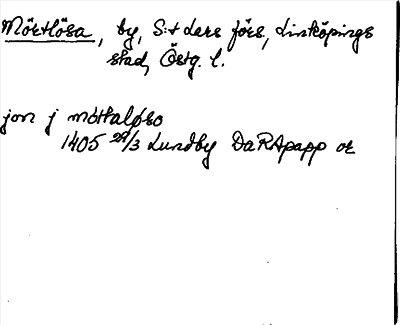 Mörtlösa, by, S:t Lars förs, Linköpings
stad, Östg. l.
jon j mörtaløso
1405 29/3 Lundby DaRApapp or